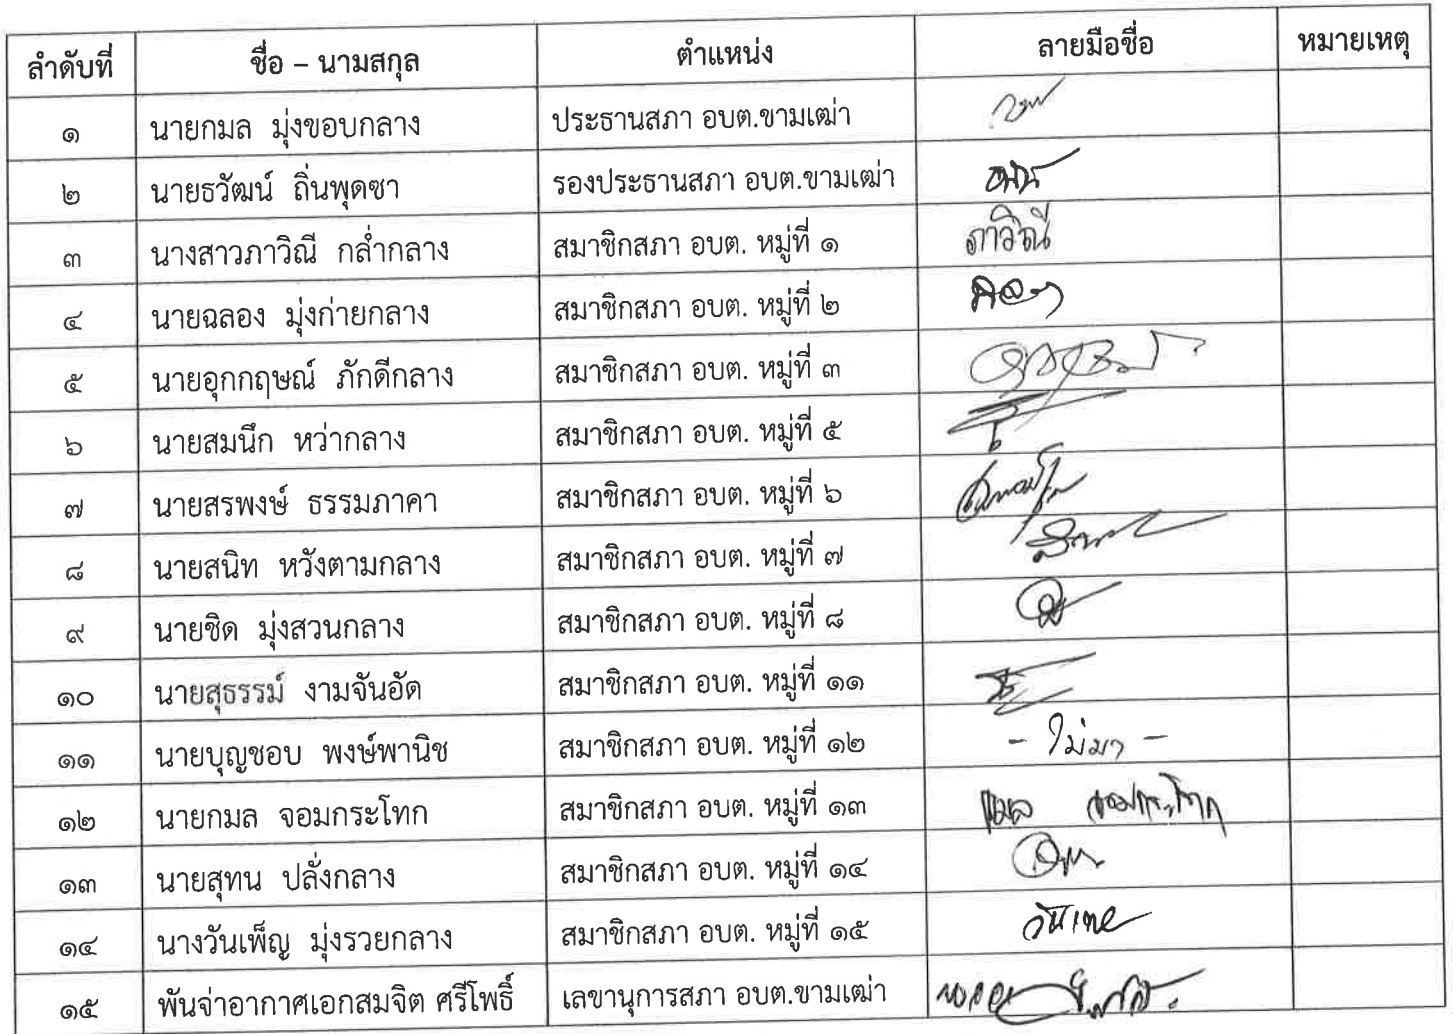 ลำดับที่ ชื่อ – นามสกุล ตำแหน่ง ลายมือชื่อ หมายเหตุ
๑ นายกมล มุ่งขอบกลาง ประธานสภา อบต.ขามเฒ่า
๒ นายธวัฒน์ ถิ่นพุดซา รองประธานสภา อบต.ขามเฒ่า
๓ นางสาวภาวิณี กล่ำกลาง สมาชิกสภา อบต. หมู่ที่ ๑ ภาวิณี
๔ นายฉลอง มุ่งก่ายกลาง สมาชิกสภา อบต. หมู่ที่ ๒
๕ นายอุกกฤษณ์ ภักดีกลาง สมาชิกสภา อบต. หมู่ที่ ๓
๖ นายสมนึก หว่ากลาง สมาชิกสภา อบต. หมู่ที่ ๕
๗ นายสรพงษ์ ธรรมภาคา สมาชิกสภา อบต. หมู่ที่ ๖
๘ นายสนิท หวังตามกลาง สมาชิกสภา อบต. หมู่ที่ ๗
๙ นายชิด มุ่งสวนกลาง สมาชิกสภา อบต. หมู่ที่ ๘
๑๐ นายสุธรรม์ งามจันอัด สมาชิกสภา อบต. หมู่ที่ ๑๑
๑๑ นายบุญชอบ พงษ์พานิช สมาชิกสภา อบต. หมู่ที่ ๑๒ - ไม่มา -
๑๒ นายกมล จอมกระโทก สมาชิกสภา อบต. หมู่ที่ ๑๓ กมล จอมกระโทก
๑๓ นายสุทน ปลั่งกลาง สมาชิกสภา อบต. หมู่ที่ ๑๔
๑๔ นางวันเพ็ญ มุ่งรวยกลาง สมาชิกสภา อบต. หมู่ที่ ๑๕ วันเพ็ญ
๑๕ พันจ่าอากาศเอกสมจิต ศรีโพธิ์ เลขานุการสภา อบต.ขามเฒ่า